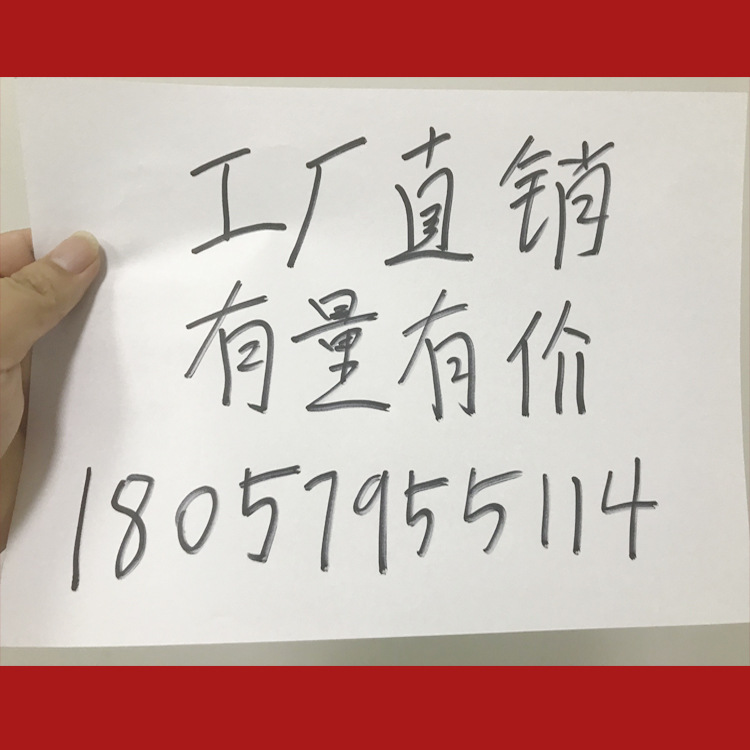 工厂直销
有量有价
18057955114